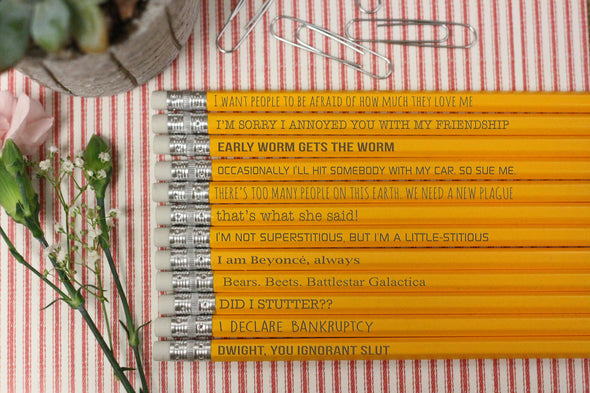 I WANT PEOPLE TO BE AFRAID OF HOW MUCH THEY LOVE ME
I'M SORRY I ANNOYED YOU WITH MY FRIENDSHIP
EARLY WORM GETS THE WORM
OCCASIONALLY I'LL HIT SOMEBODY WITH MY CAR. SO SUE ME.
THERE'S TOO MANY PEOPLE ON THIS EARTH. WE NEED A NEW PLAGUE
that's what she said!
I'M NOT SUPERSTITIOUS, BUT I'M A LITTLE-STITIOUS
I am Beyoncé, always
Bears. Beets. Battlestar Galactica
DID I STUTTER??
I DECLARE BANKRUPTCY
DWIGHT, YOU IGNORANT SLUT